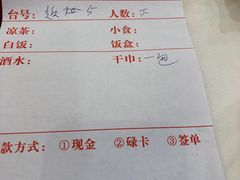 台号: 5 人数: 正
凉茶: 小食:
白饭: 饭盒:
酒水: 干巾: 一包
款方式: ①现金 ②碌卡 ③签单